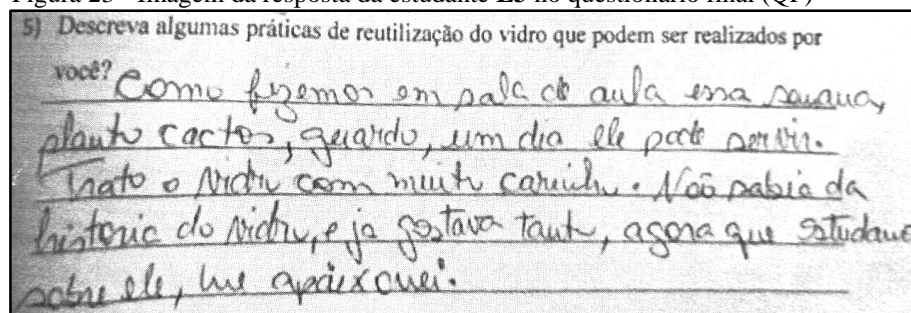 Figura 25 - Imagem da resposta da estudante E3 no questionário final (QF)
5) Descreva algumas práticas de reutilização do vidro que podem ser realizados por
você? Como fizemos em sala de aula essa semana,
planto cactos, guardo, um dia ele pode servir.
Trato o vidro com muito carinho. Não sabia da
historia do vidro, e ja gostava tanto, agora que estudamos
sobre ele, me apaixonei.